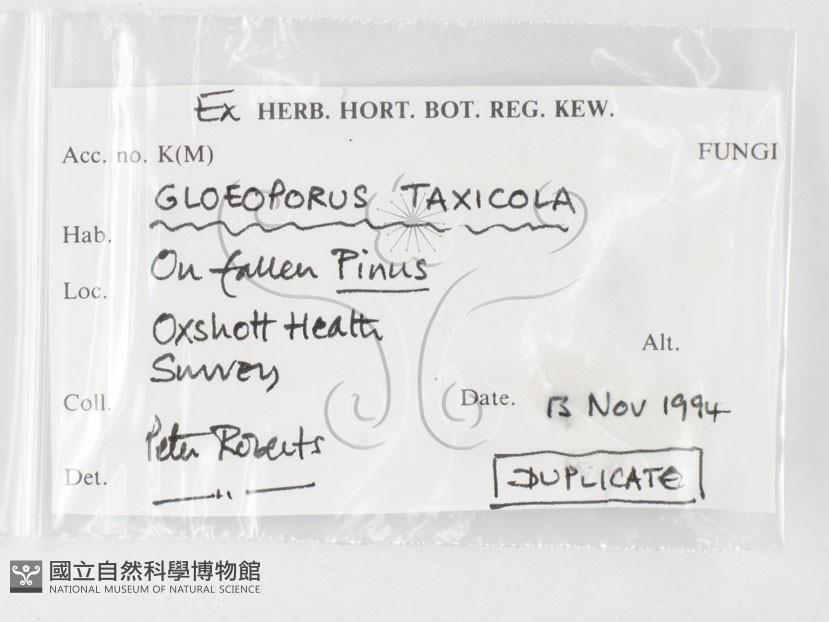 Ex HERB. HORT. BOT. REG. KEW.
Acc. no. K(M) FUNGI
GLOEOPORUS TAXICOLA
Hab.
On fallen Pinus
Loc.
Oxshott Heath
Alt.
Survey
Coll. Date. 13 Nov 1994
Peter Roberts
Det. DUPLICATE
— '' —
國立自然科學博物館
NATIONAL MUSEUM OF NATURAL SCIENCE